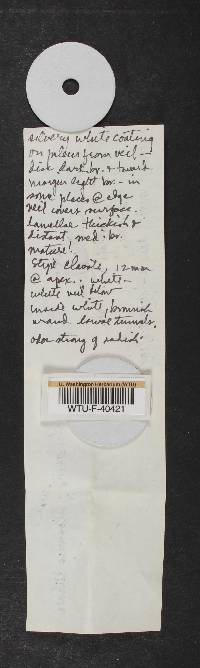 silvery white coating
on pileus from veil -
disk dark br. & toward
margin light br. - in
some places @ edge
veil covers surface.
Lamellae thickish &
distant, med. br.
mature!
Stipe clavate, 12 mm
@ apex. white -
white veil below
inside white, brownish
around larval tunnels.
odor strong of radish.
U. Washington Herbarium (WTU)
WTU-F-40421